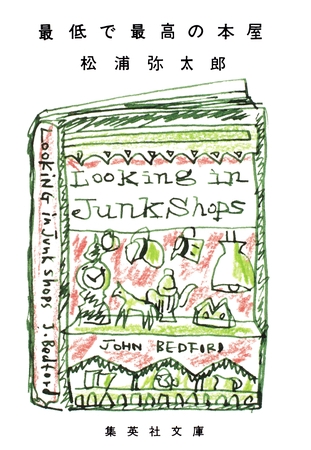 最低で最高の本屋
松浦弥太郎
Looking in Junk Shops J. Bedford
Looking in
Junk Shops
JOHN BEDFORD
集英社文庫